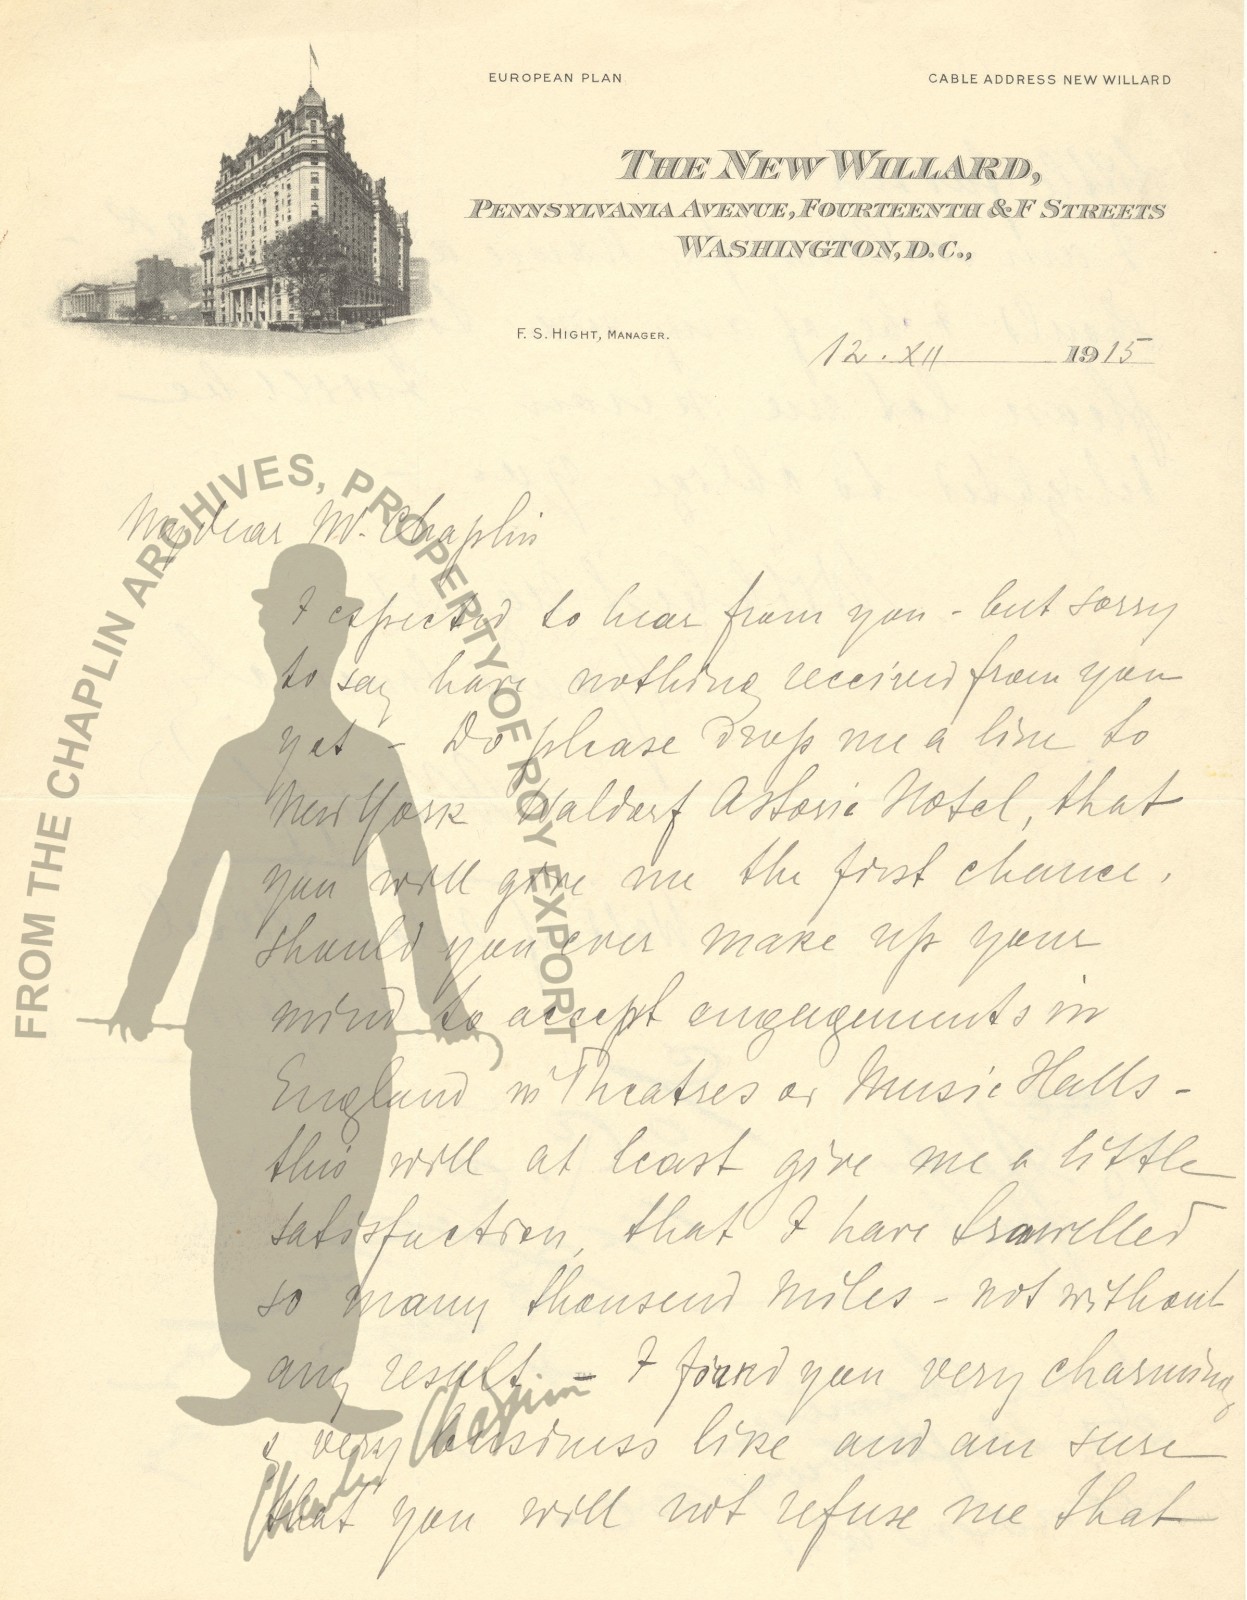 EUROPEAN PLAN
CABLE ADDRESS NEW WILLARD
THE NEW WILLARD,
PENNSYLVANIA AVENUE, FOURTEENTH & F STREETS
WASHINGTON, D.C.,
F. S. HIGHT, MANAGER.
12. XII 1915
FROM THE CHAPLIN ARCHIVES, PROPERTY OF ROY EXPORT
My dear Mr. Chaplin
I expected to hear from you - but sorry
to say have nothing received from you
yet - Do please drop me a line to
New York Waldorf Astoria Hotel, that
you will give me the first chance,
should you ever make up your
mind to accept engagements in
England in Theatres or Music Halls -
this will at least give me a little
satisfaction, that I have trawelled
so many thousend miles - not without
any result - I found you very charming
& very bussiness like and am sure
that you will not refuse me that
Charlie Chaplin